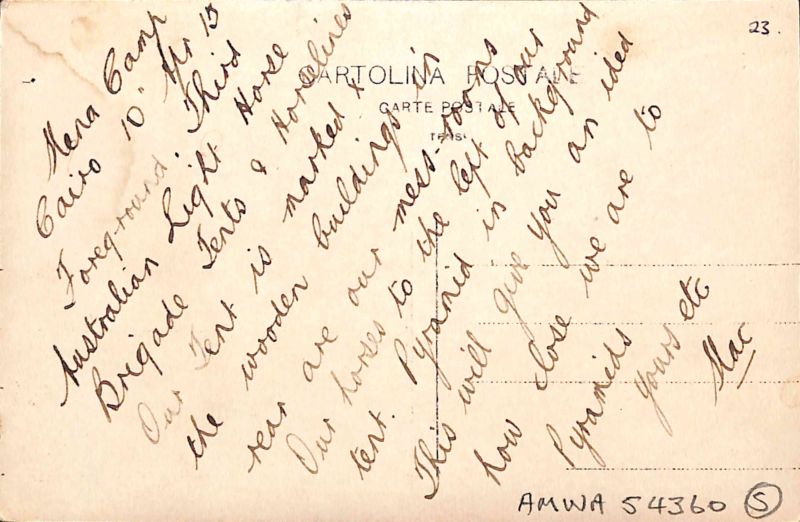 23.
CARTOLINA POSTALE
CARTE POSTALE
Mena Camp
Cairo 10" Apr 15
Foreground. Third
Australian Light Horse
Brigade Tents & Horselines
Our Tent is marked x
the wooden buildings in
rear are our mess-rooms
Our horses to the left of our
tent. Pyramid in background
This will give you an idea
how close we are to
Pyramids
yours etc
Mac
AMWA 54360 S